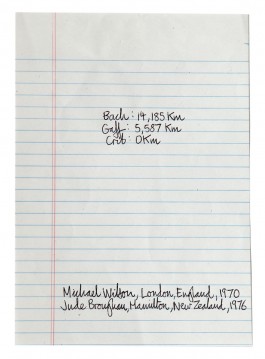 Bach: 14,185 Km
Gaff: 5,587 Km
Crib: 0 Km
Michael Wilson, London, England, 1970
Jude Broughan, Hamilton, New Zealand, 1976